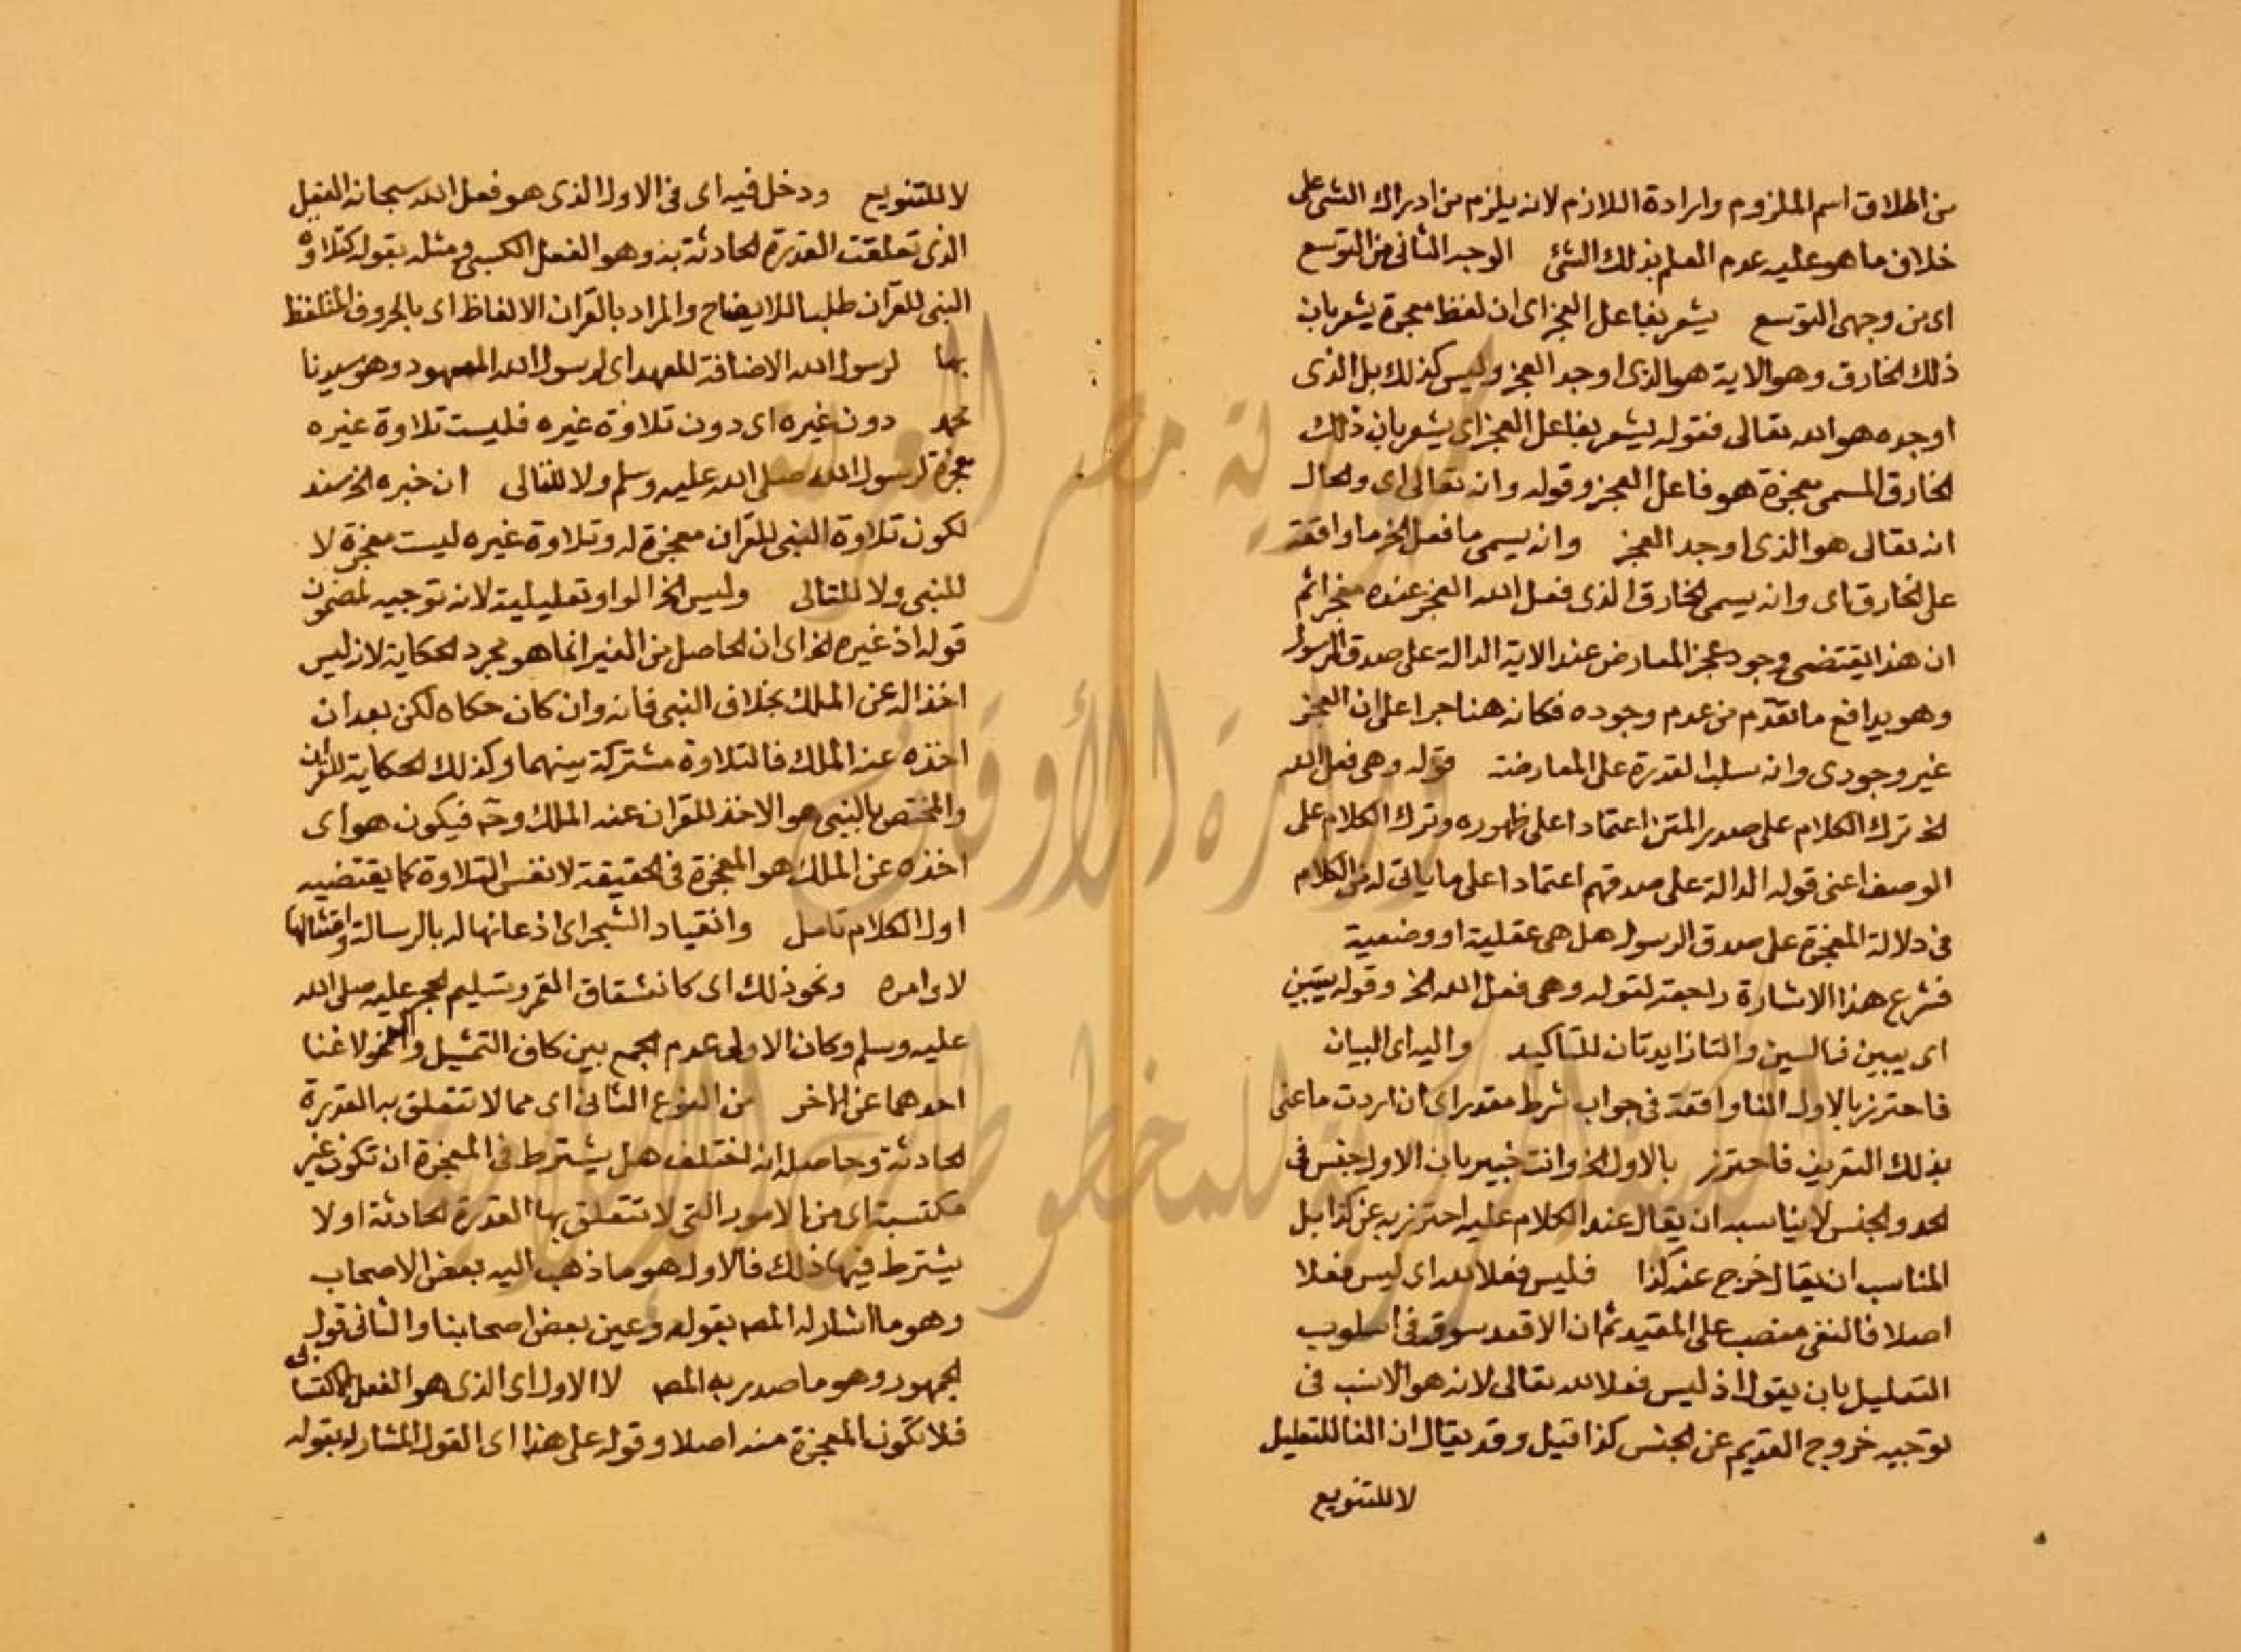 من اطلاق اسم الملزوم وارادة اللازم لانه يلزم من ادراك الشئ على
خلاف ما هو عليه عدم العلم بذلك الشئ الوجه الثانى من التوسع
اى من وجهى التوسع يشعر بفاعل العجز اى ان لفظ معجزة يشعر بان
ذلك الخارق وهو الاية هو الذى اوجد العجز وليس كذلك بل الذى
اوجده هو الله تعالى فقوله يشعر بفاعل العجز اى يشعر بان ذلك
الخارق المسمى معجزة هو فاعل العجز وقوله وانه تعالى اى والحال
انه تعالى هو الذى اوجد العجز وانه يسمى ما فعل الخ ما واقعة
على الخارق اى وانه يسمى الخارق الذى فعل الله العجز عنده معجزا ثم
ان هذا يقتضى وجود عجز المعارض عند الاية الدالة على صدق الرسول
وهو يدافع ما تقدم من عدم وجوده فكانه هنا جرا على ان العجز
غير وجودى وانه سلب القدرة على المعارضة قوله وهى فعل الله
الخ ترك الكلام على صدر المتن اعتمادا على ظهوره وترك الكلام على
الوصف اعنى قوله الدالة على صدقهم اعتمادا على ما ياتى له من الكلام
فى دلالة المعجزة على صدق الرسول هل هى عقلية او وضعية
فشرع هذا الاشارة راجعة لقوله وهى فعل الله الخ وقوله يستبين
اى يبين فالسين والتا زايدتان للتاكيد واليه اى البيان
فاحترز بالاول الفا واقعة فى جواب شرط مقدر اى ان اردت ما عنى
بذلك التعريف فاحترز بالاول الخ وانت خبير بان الاول جنس فى
الحد والجنس لا يناسبه ان يقال عند الكلام عليه احترز به عن كذا بل
المناسب ان يقال خرج عنه كذا فليس فعلا لله اى ليس فعلا
اصلا فالنفى منصب على المقيد ثم ان الاقعد سوقه فى اسلوب
التعليل بان يقول اذ ليس فعلا لله تعالى لانه هو الانسب فى
توجيه خروج القديم عن الجنس كذا قيل وقد يقال ان الفا للتعليل
لا للتنويع
لا للتنويع ودخل فيه اى فى الاول الذى هو فعل الله سبحانه الفعل
الذى تعلقت القدرة الحادثة به وهو الفعل الكسبى ومثله بقوله كتلاوة
النبى للقرآن طلبا للايضاح والمراد بالقرآن الالفاظ اى بالحروف المتلفظ
بها لرسول الله الاضافة للعهد اى لرسول الله المعهود وهو سيدنا
محمد دون غيره اى دون تلاوة غيره فليست تلاوة غيره
معجزة لرسول الله صلى الله عليه وسلم ولا للتالى ان خبره الخ سند
لكون تلاوة النبى للقرآن معجزة له وتلاوة غيره ليست معجزة لا
للنبى ولا للتالى وليس الخ الواو تعليلية لانه توجيه لمضمون
قوله اذ غيره الخ اى ان الحاصل من الغير انما هو مجرد الحكاية لانه ليس
اخذا له عن الملك بخلاف النبى فانه وان كان حكاه لكن بعد ان
اخذه عن الملك فالتلاوة مشتركة بينهما وكذلك الحكاية للقرآن
والمختص بالنبى هو الاخذ للقران عند الملك وح فيكون هو اى
اخذه عن الملك هو المعجزة فى الحقيقة لا نفس التلاوة كما يقتضيه
اول الكلام تامل وانقياد الشجر اى اذعانها له بالرسالة وامتثالها
لاوامره ونحو ذلك اى كانشقاق القمر وتسليم الحجر عليه صلى الله
عليه وسلم وكان الاولى عدم الجمع بين كاف التمثيل والنحو لاغنا
احدهما عن الاخر من النوع الثانى اى مما لا تتعلق به القدرة
الحادثة وحاصله انه اختلف هل يشترط فى المعجزة ان تكون غير
مكتسبة اى من الامور التى لا تتعلق بها القدرة الحادثة او لا
يشترط فيها ذلك فالاول هو ما ذهب اليه بعض الاصحاب
وهو ما اشار له المصـ بقوله وعين بعض اصحابنا والثانى قول
الجمهور وهو ما صدر به المصـ لا الاول اى الذى هو الفعل الاكتسابى
فلا تكون المعجزة منه اصلا وقوله على هذا اى القول المشار له بقوله